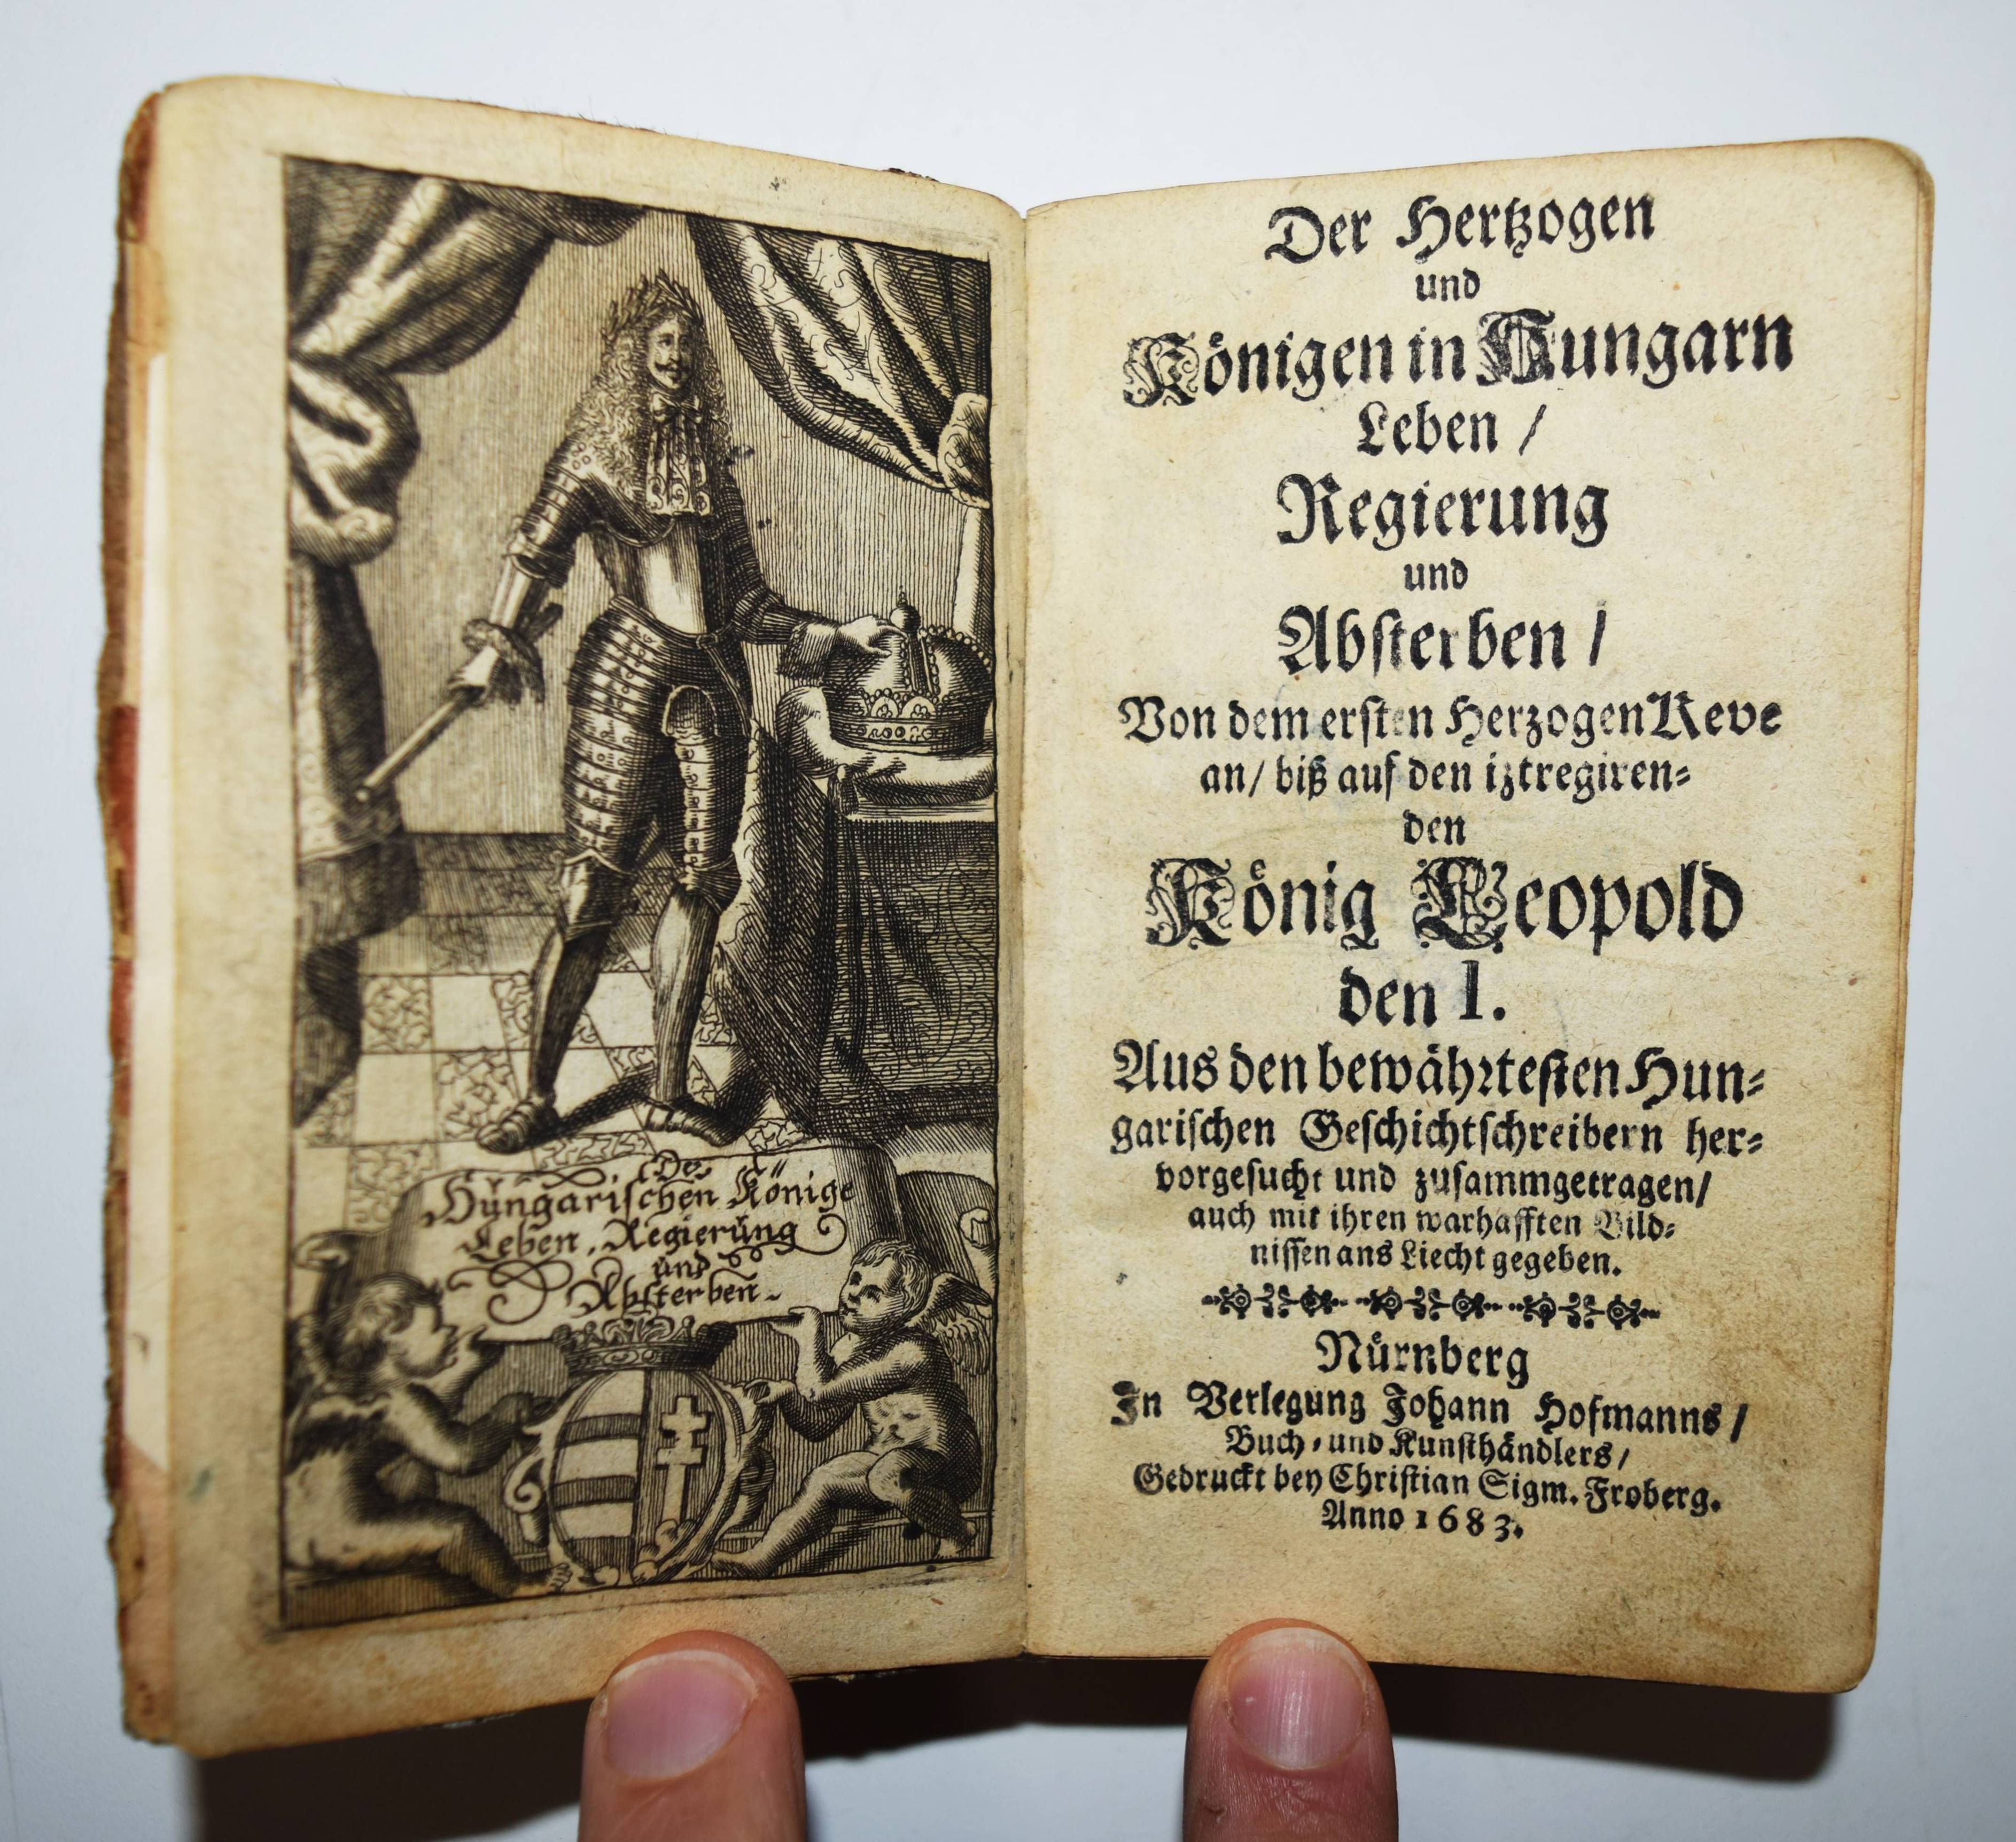 Der
Hungarischen Könige
Leben, Regierung
und
Absterben.
Der Hertzogen
und
Königen in Hungarn
Leben /
Regierung
und
Absterben /
Von dem ersten Herzogen Keve
an / biß auf den iztregiren-
den
König Leopold
den I.
Aus den bewährtesten Hun-
garischen Geschichtschreibern her-
vorgesucht und zusammgetragen /
auch mit ihren warhafften Bild-
nissen ans Liecht gegeben.
Nürnberg
In Verlegung Johann Hofmanns /
Buch- und Kunsthändlers /
Gedruckt bey Christian Sigm. Froberg.
Anno 1683.